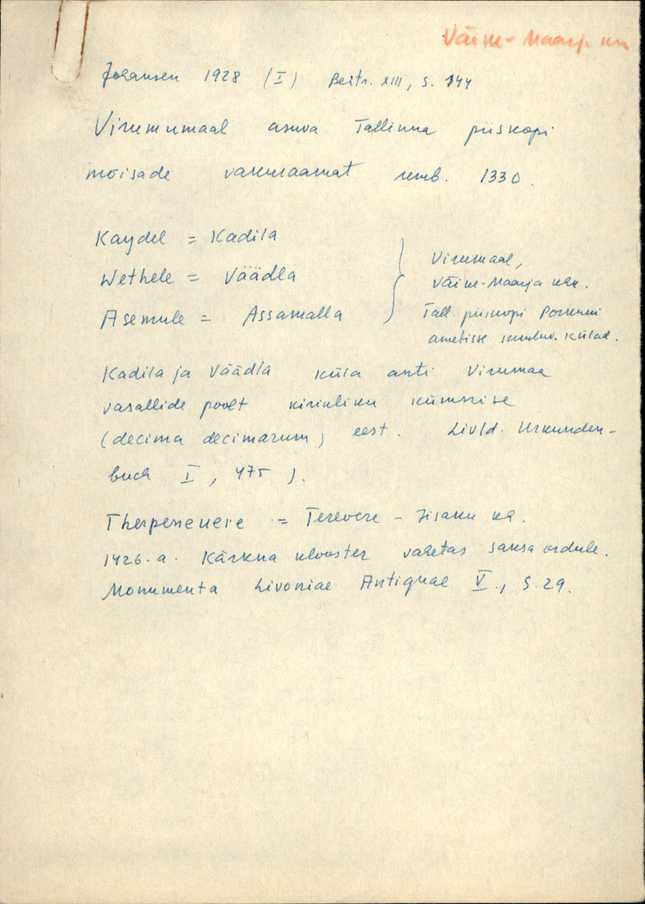 Väike-Maarja kn
Johansen 1928 (I) Beitr. XIII, S. 144
Virumumaal asuva Tallinna piiskopi
mõisade vakuraamat umb. 1330.
Kaydel = Kadila
Wethele = Väädla
Asemule = Assamalla
Virumaal,
Väike-Maarja
Tall. piiskopi
ametisse külad.
Kadila ja Väädla küla anti Virumaa
vasallide poolt kirikliku kümnise
(decima decimarum) eest. Livld. Urkunden-
buch I, 475).
= Terevere - Iisaku
1426. a. Kärkna klooster vahetas saksa ordule.
Monumenta Livoniae Antiquae V., S. 29.